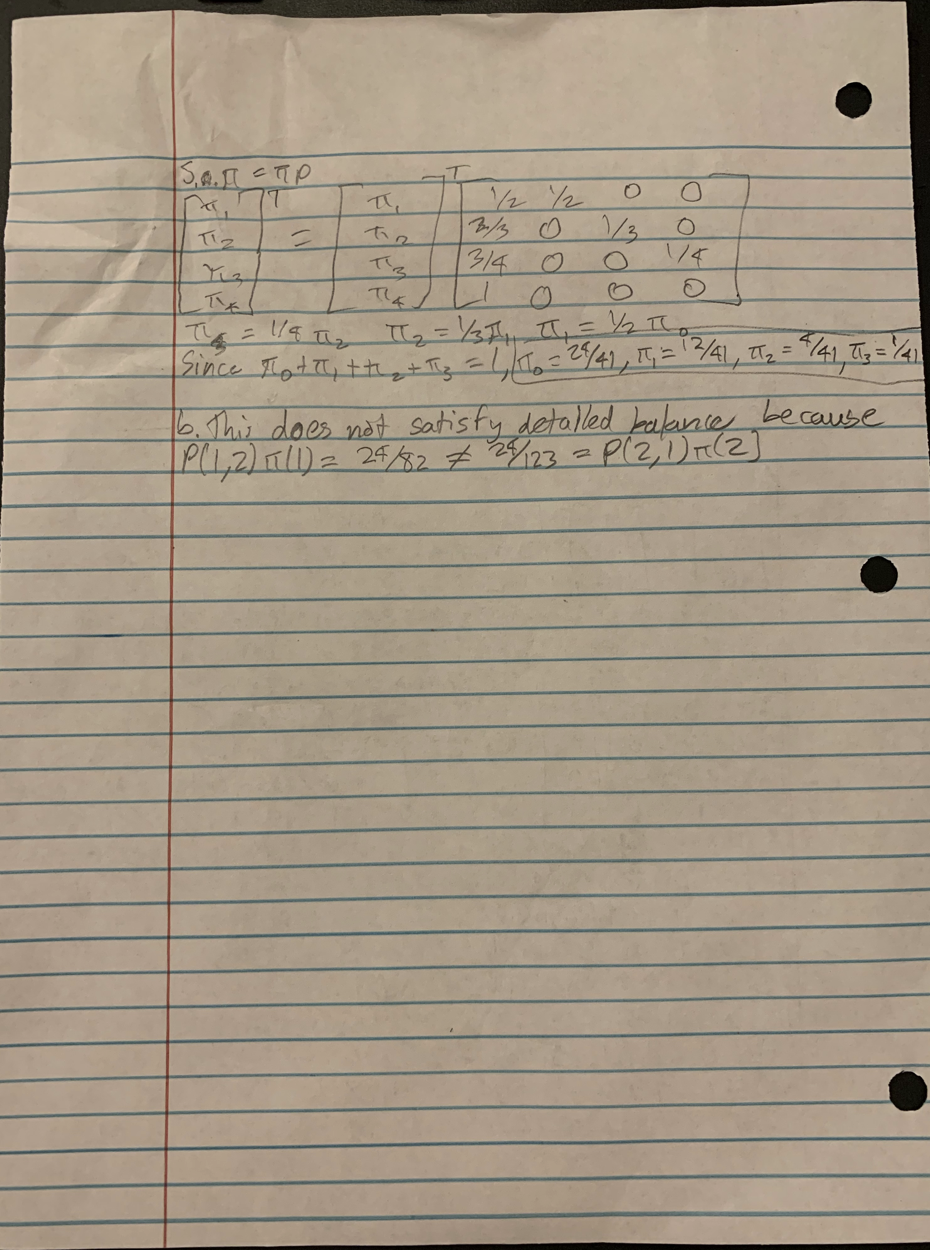 5.a. π = πP
[π₁ π₂ π₃ π₄]ᵀ = [π₁ π₂ π₃ π₄]ᵀ [1/2 1/2 0 0
2/3 0 1/3 0
3/4 0 0 1/4
1 0 0 0]
π₃ = 1/4 π₂ π₂ = 1/3 π₁, π₁ = 1/2 π₀
Since π₀+π₁++π₂+π₃ = 1, π₀ = 24/41, π₁ = 12/41, π₂ = 4/41, π₃ = 1/41
b. This does not satisfy detailed balance because
P(1,2) π(1) = 24/82 ≠ 24/123 = P(2,1) π(2)